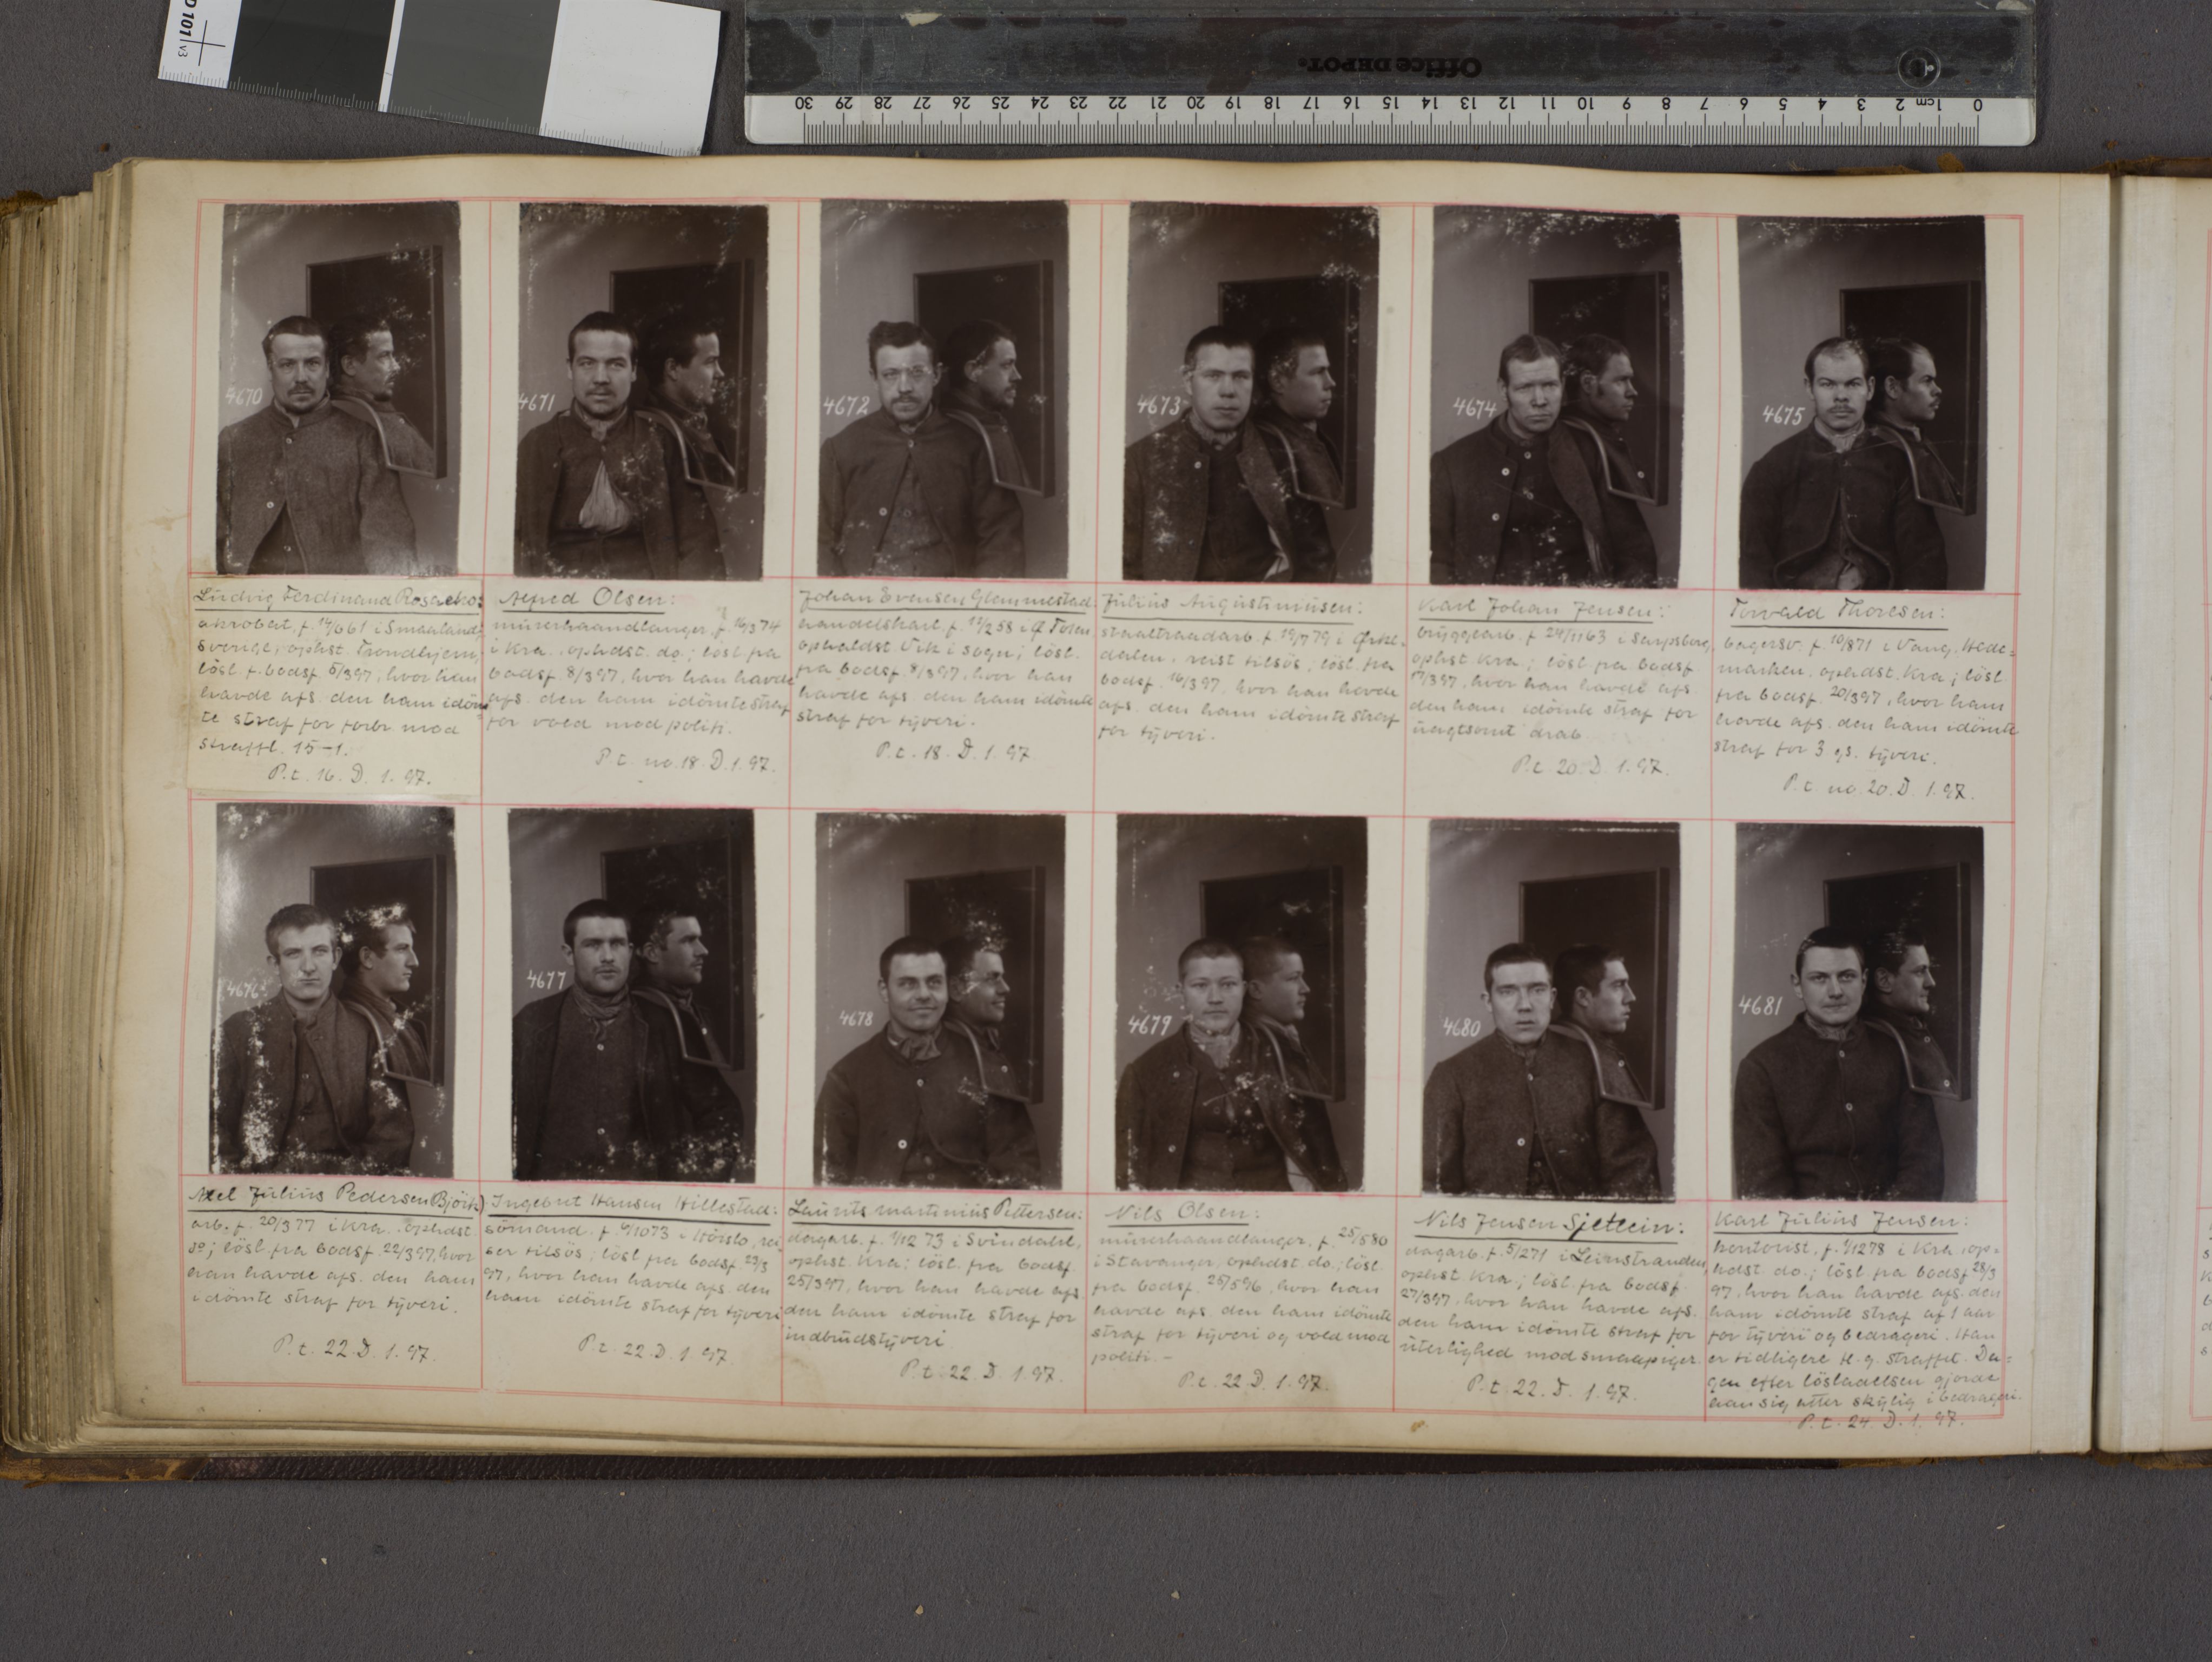 D 101 v3
Office DEPOT
30 29 28 27 26 25 24 23 22 21 20 19 18 17 16 15 14 13 12 11 10 9 8 7 6 5 4 3 2 1cm 0
4670
4671
4672
4673
4674
4675
Ludvig Ferdinand Rosacho:
akrobat, f. 14/6 61 i Smaaland,
Sverige; ophst. Trondhjem;
lösl. f. bodsf. 5/3 97, hvor han
havde afs. den ham idöm-
te straf for forbr. mod
straffl. 15-1.
P.t. 16. D. 1. 97.
Alfred Olsen:
murerhaandlanger, f. 16/3 74
i Kra., ophdst. do.; lösl. fra
bodsf. 8/3 97, hvor han havde
afs. den ham idömte straf
for vold mod politi.
P.t. no. 18. D. 1. 97.
Johan Evensen Glemmestad:
handelskarl, f. 12/2 58 i Ø. Toten,
opholdst Vik i Sogn; lösl.
fra bodsf. 8/3 97, hvor han
havde afs. den ham idömte
straf for tyveri.
P.t. 18. D. 1. 97
Julius Augustinusen:
staaltraadarb. f. 19/7 79 i Ørke-
dalen, reist tilsös; lösl. fra
bodsf. 16/3 97, hvor han havde
afs. den ham idömte straf
for tyveri.
Karl Johan Jensen:
bryggearb. f. 24/11 63 i Sarpsborg,
ophst. Kra.; lösl. fra bodsf.
17/3 97, hvor han havde afs.
den ham idömte straf for
uagtsomt drab
P.t. 20. D. 1. 97.
Torvald Thoresen:
bagersv. f. 10/8 71 i Vang, Hede-
marken, ophdst. Kra; lösl.
fra bodsf. 20/3 97, hvor han
havde afs. den ham idömte
straf for 3 gs. tyveri.
P.t. no. 20. D. 1. 97.
4676
4677
4678
4679
4680
4681
Axel Julius Pedersen (Björk)
arb. f. 20/3 77 i Kra., ophdst.
do; lösl. fra bodsf. 22/3 97, hvor
han havde afs. den ham
idömte straf for tyveri.
P.t. 22. D. 1. 97.
Ingebret Hansen Hillestad:
sömand. f. 4/10 73 i
ser tilsös; lösl. fra bodsf. 23/3
97, hvor han havde afs. den
ham idömte straf for tyveri
P.t. 22. D. 1. 97.
Laurits Martinius Pettersen:
dagarb. f. 1/12 73 i Svindahl,
ophst. Kra; lösl. fra bodsf.
25/3 97, hvor han havde afs.
den ham idömte straf for
indbrudstyveri
P.t. 22. D. 1. 97.
Nils Olsen:
murerhaandlanger, f. 25/5 80
i Stavanger, ophdst. do.; lösl.
fra bodsf. 25/5 96, hvor han
havde afs. den ham idömte
straf for tyveri og vold mod
politi.-
P.t. 22. D. 1. 97.
Nils Jensen Sjetlein:
dagarb. f. 5/2 71 i Leinstranden,
ophst. Kra; lösl. fra bodsf.
27/3 97, hvor han havde afs.
den ham idömte straf for
uterlighed mod smaapiger.
P.t. 22. D. 1. 97.
Karl Julius Jensen:
kontorist. f. 4/12 78 i Kra, op-
hdst. do.; lösl. fra bodsf. 28/3
97, hvor han havde afs. den
ham idömte straf af 1 aar
for tyveri og bedrageri. Han
er tidligere fl. g. straffet. Da-
gen efter lösladelsen gjorde
han sig atter skyldig i bedrageri.
P.t. 24. D. 1. 97.